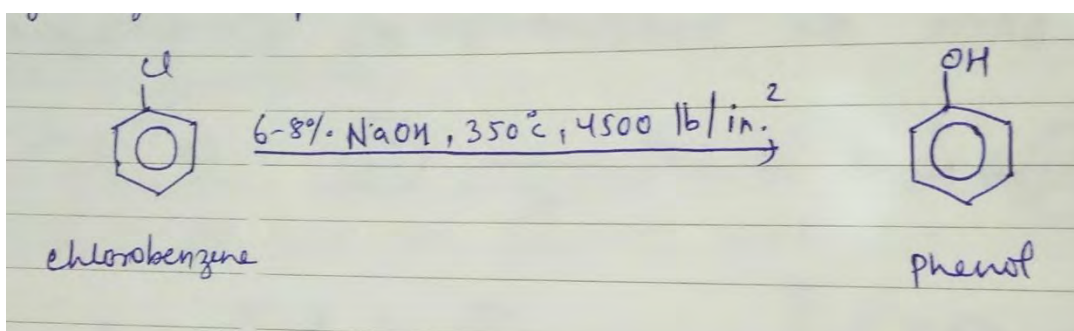 Cl
OH
6-8% NaOH, 350°C, 4500 lb/in.²
chlorobenzene
Phenol